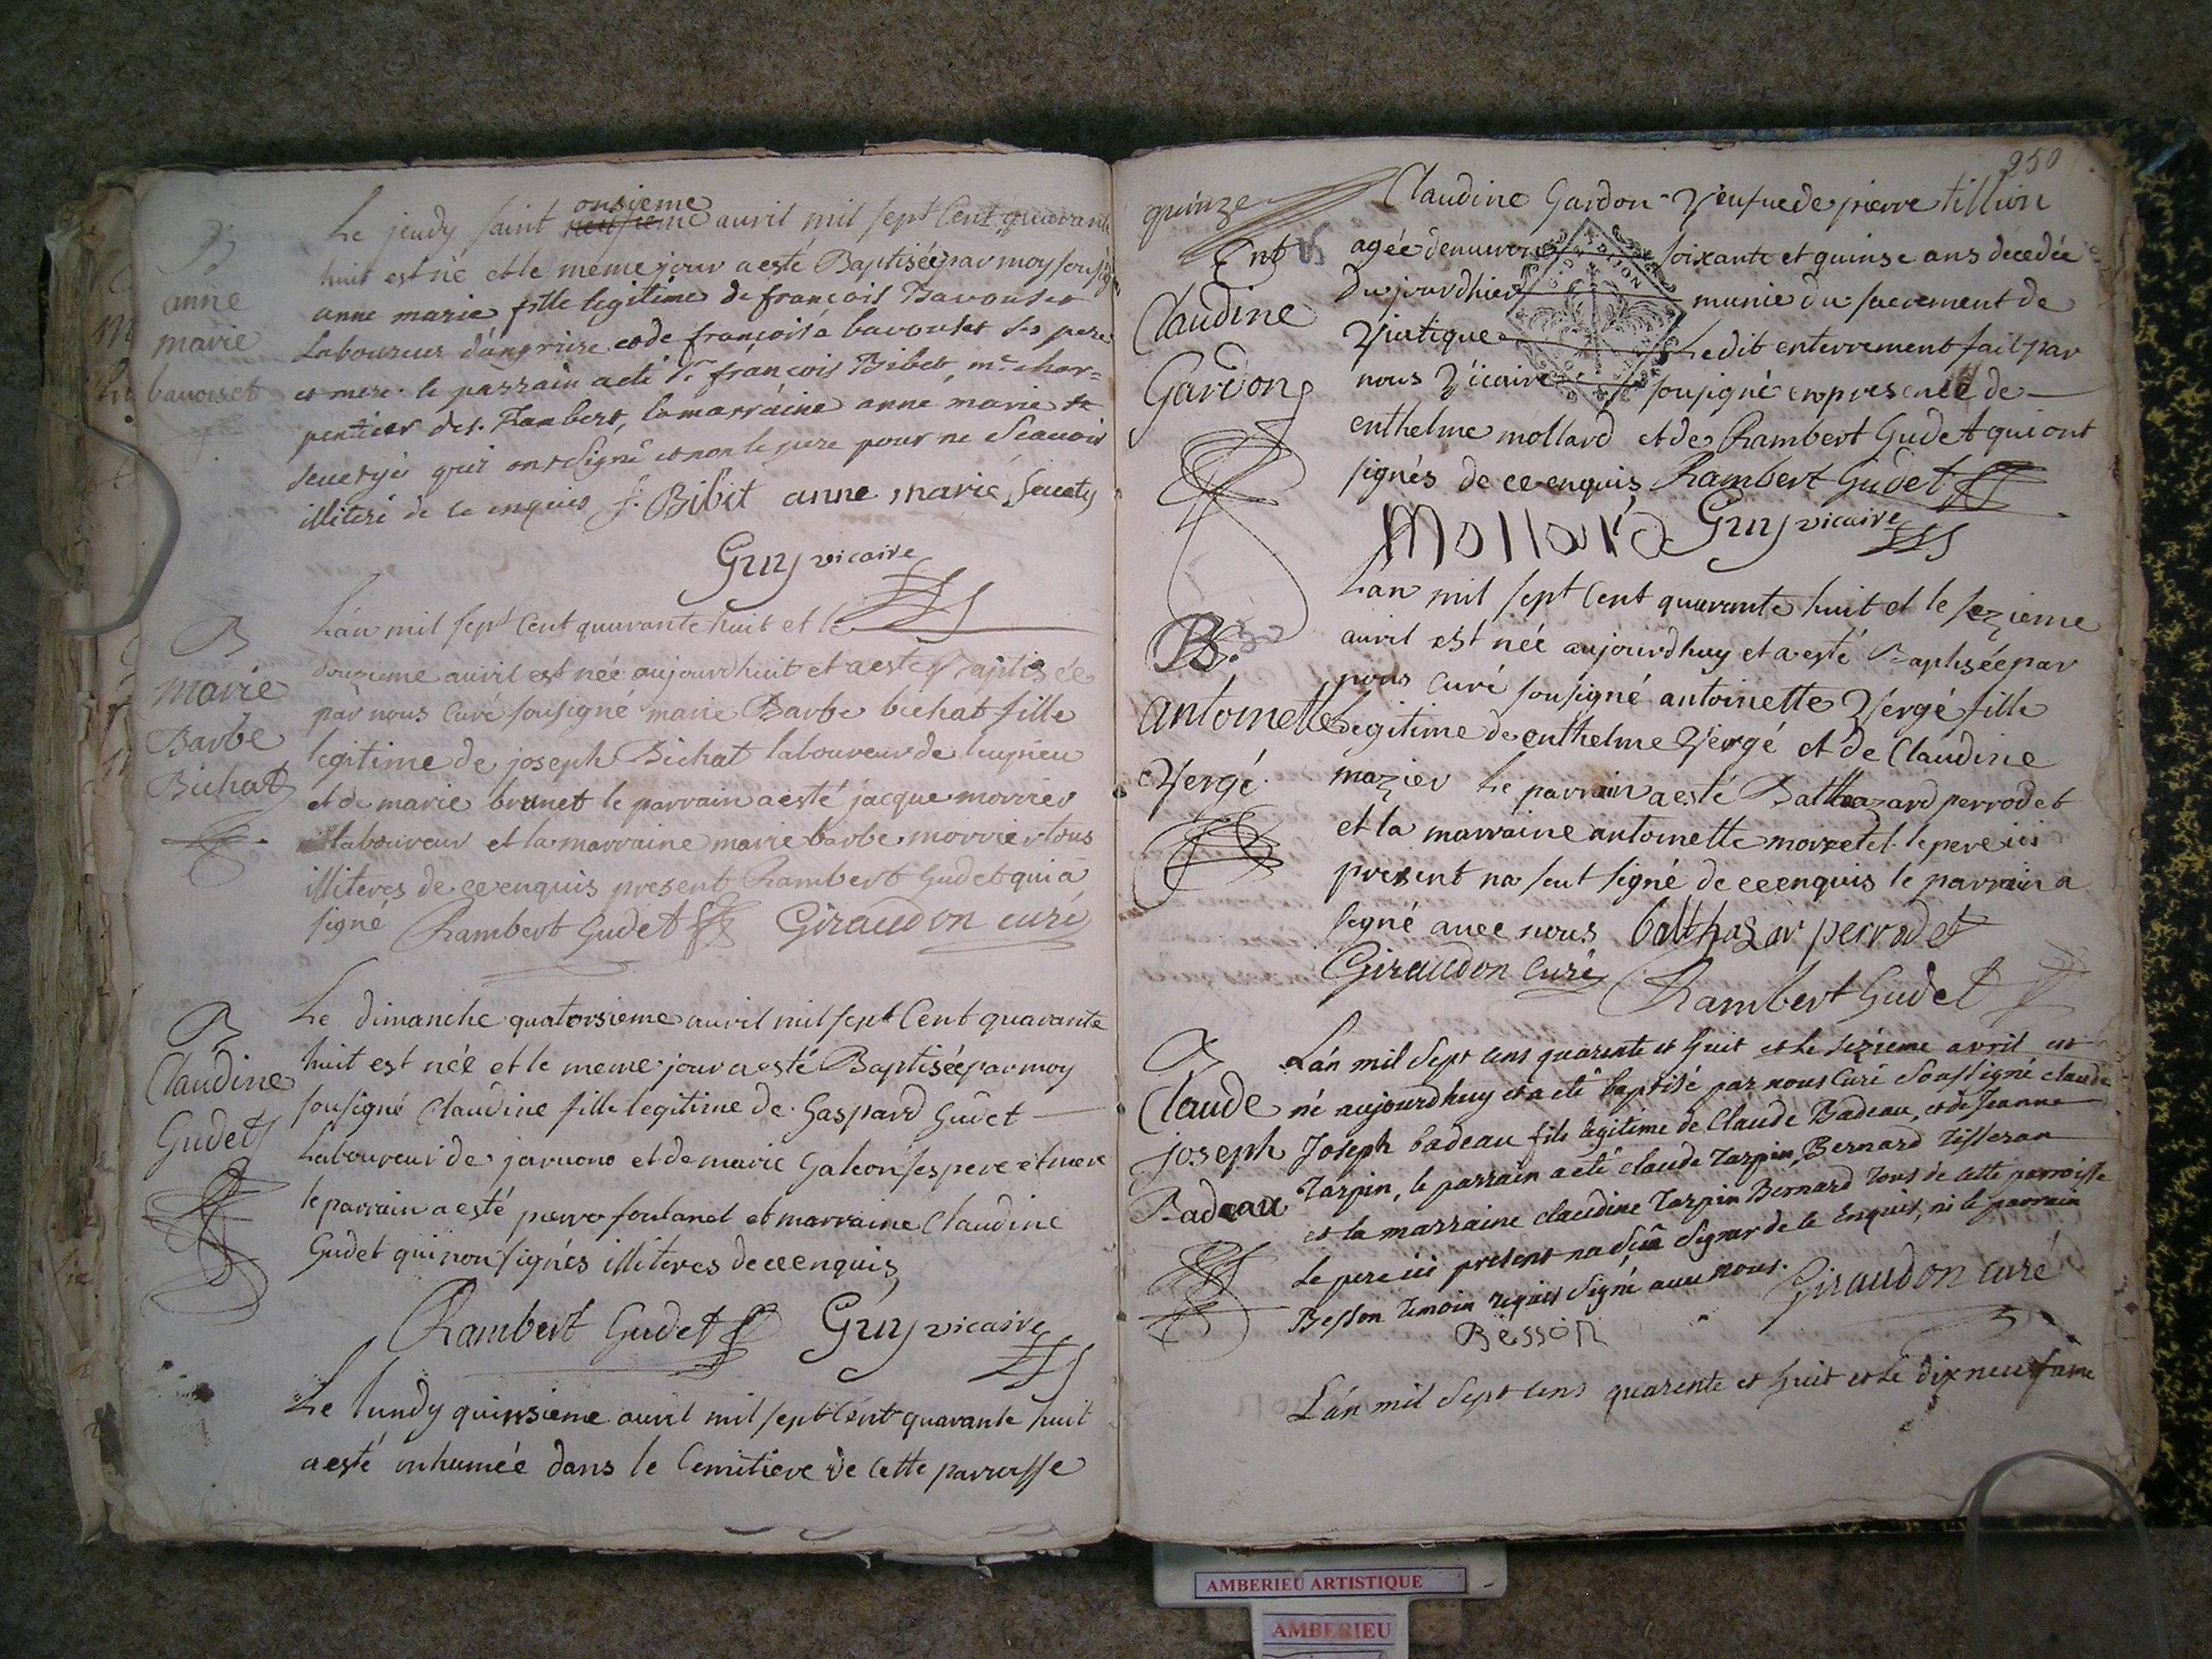 B
anne
marie
bavouset
onsieme
Le jeudy saint neufieme auril mil sept Cent quarante
huit est né et le meme jour a esté Baptisée par moy sousigé
anne marie fille legitime de françois Bavouset
Laboureur d'angriere et de françoise bavouset ses pere
et mere. le parrain a eté Sr. françois Bibet, me. char=
pentier de St. Rambert, la marraine anne marie
seuetyé qui ont signé et non le pere pour ne scauoir
illiteré de ce enquis f. Bibet anne marie seuety
Guy vicaire
B
marie
Barbe
Bichat
L'an mil sept Cent quarante huit et le
douzieme auril est née aujourdhuit et a esté Baptisée
par nous Curé sousigné marie Barbe bichat fille
legitime de joseph Bichat laboureur de luyrieu
et de marie brunet le parrain a esté jacque morrier
laboureur et la marraine marie barbe morrier tous
illiteres de ce enquis present Rambert Gudet qui a
signé Rambert Gudet Giraudon curé
B
Claudine
Gudet
Le dimanche quatorsieme auril mil sept Cent quarante
huit est née et le meme jour a esté Baptisée par moy
sousigné Claudine fille legitime de Gaspard Gudet
Laboureur de javuono et de marie Galeon ses pere et mere
le parrain a esté pierre foulanel et marraine Claudine
Gudet qui non signés illiteres de ce enquis
Rambert Gudet Guy vicaire
Le lundy quinsieme auril mil sept Cent quarante huit
a esté inhumée dans le Cemitiere de Cette parroisse
250
quinze
Ent
Claudine
Gardon
Claudine Gardon Veufue de pierre tillion
agée denuiron soixante et quinse ans decedée
du jourdhier munie du sacrement de
Viatique Ledit enterrement fait par
nous Vicaire sousigné en presence de
enthelme mollard et de Rambert Gudet qui ont
signés de ce enquis Rambert Gudet
Mollard Guy vicaire
B.
antoinette
Vergé
Lan mil sept Cent quarante huit et le sezieme
auril est née aujourdhuy et a esté Baptisée par
nous Curé sousigné antoinette Vergé fille
Legitime de enthelme Vergé et de Claudine
mazier Le parrain a esté Balthazard perrodet
et la marraine antoinette morzetel le pere ici
present na seut signé de ce enquis le parrain a
signé auec nous balthazar perrodet
Giraudon Curé Rambert Gudet
B
Claude
joseph
Badeau
L'an mil Sept cens quarente et huit et le sezieme avril est
né aujourdhuy et a eté baptisé par nous Curé Soussigné claude
Joseph badeau fils legitime de Claude Badeau, et de Jeanne
Tarpin, le parrain a eté claude Tarpin, Bernard tisseran
et la marraine claudine Tarpin Bernard tous de cette parroisse
Le pere ici present na Sçû Signer de ce Enquis, ni le parrain
Besson temoin requis Signé auec nous. Giraudon curé
Besson
L'an mil Sept cens quarente et huit et le dix neufieme
AMBERIEU ARTISTIQUE
AMBERIEU